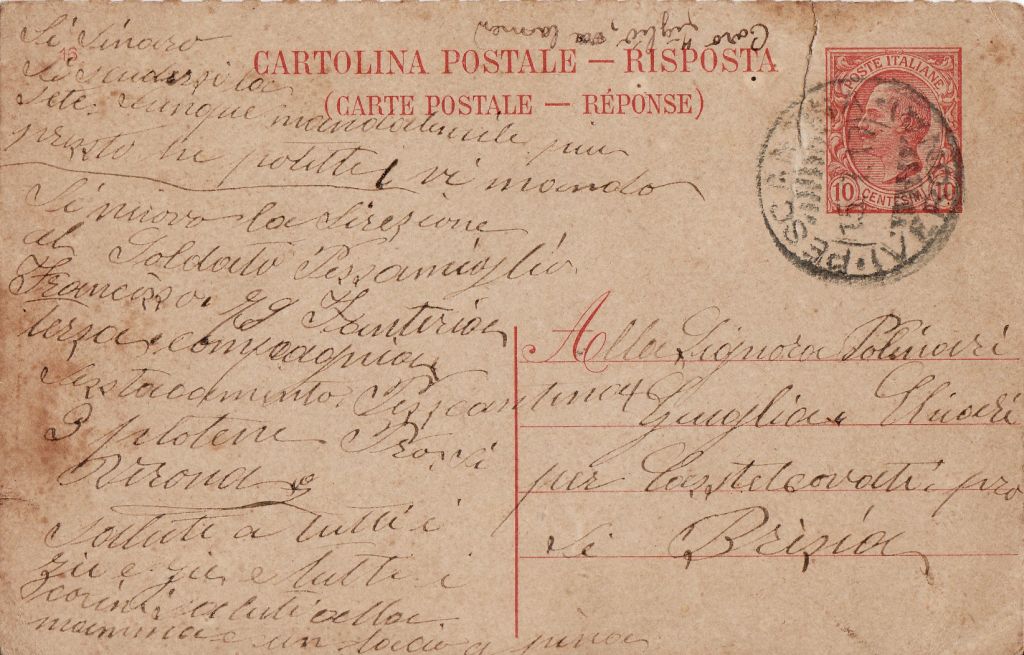 Caro figlio,
CARTOLINA POSTALE — RISPOSTA
(CARTE POSTALE — RÉPONSE)
POSTE ITALIANE
10 CENTESIMI 10
PESCANTINA
16
Di
la
sete dunque mandatemele piu
presto che potette vi mando
Di nuovo la Direzione
al Soldato Pessamiglio
Francisco 79 Fanteria
Terza compagnia
Distacamento Pescantina
3 plotone Provi
Verona
Saluti a tutti i
zii e zie e tutti i
cocini saluti alla
mamma e un bacio a pina
Alla Signora Polinari
Guiglia Chiari
per Castelcovati pro
di Brisia